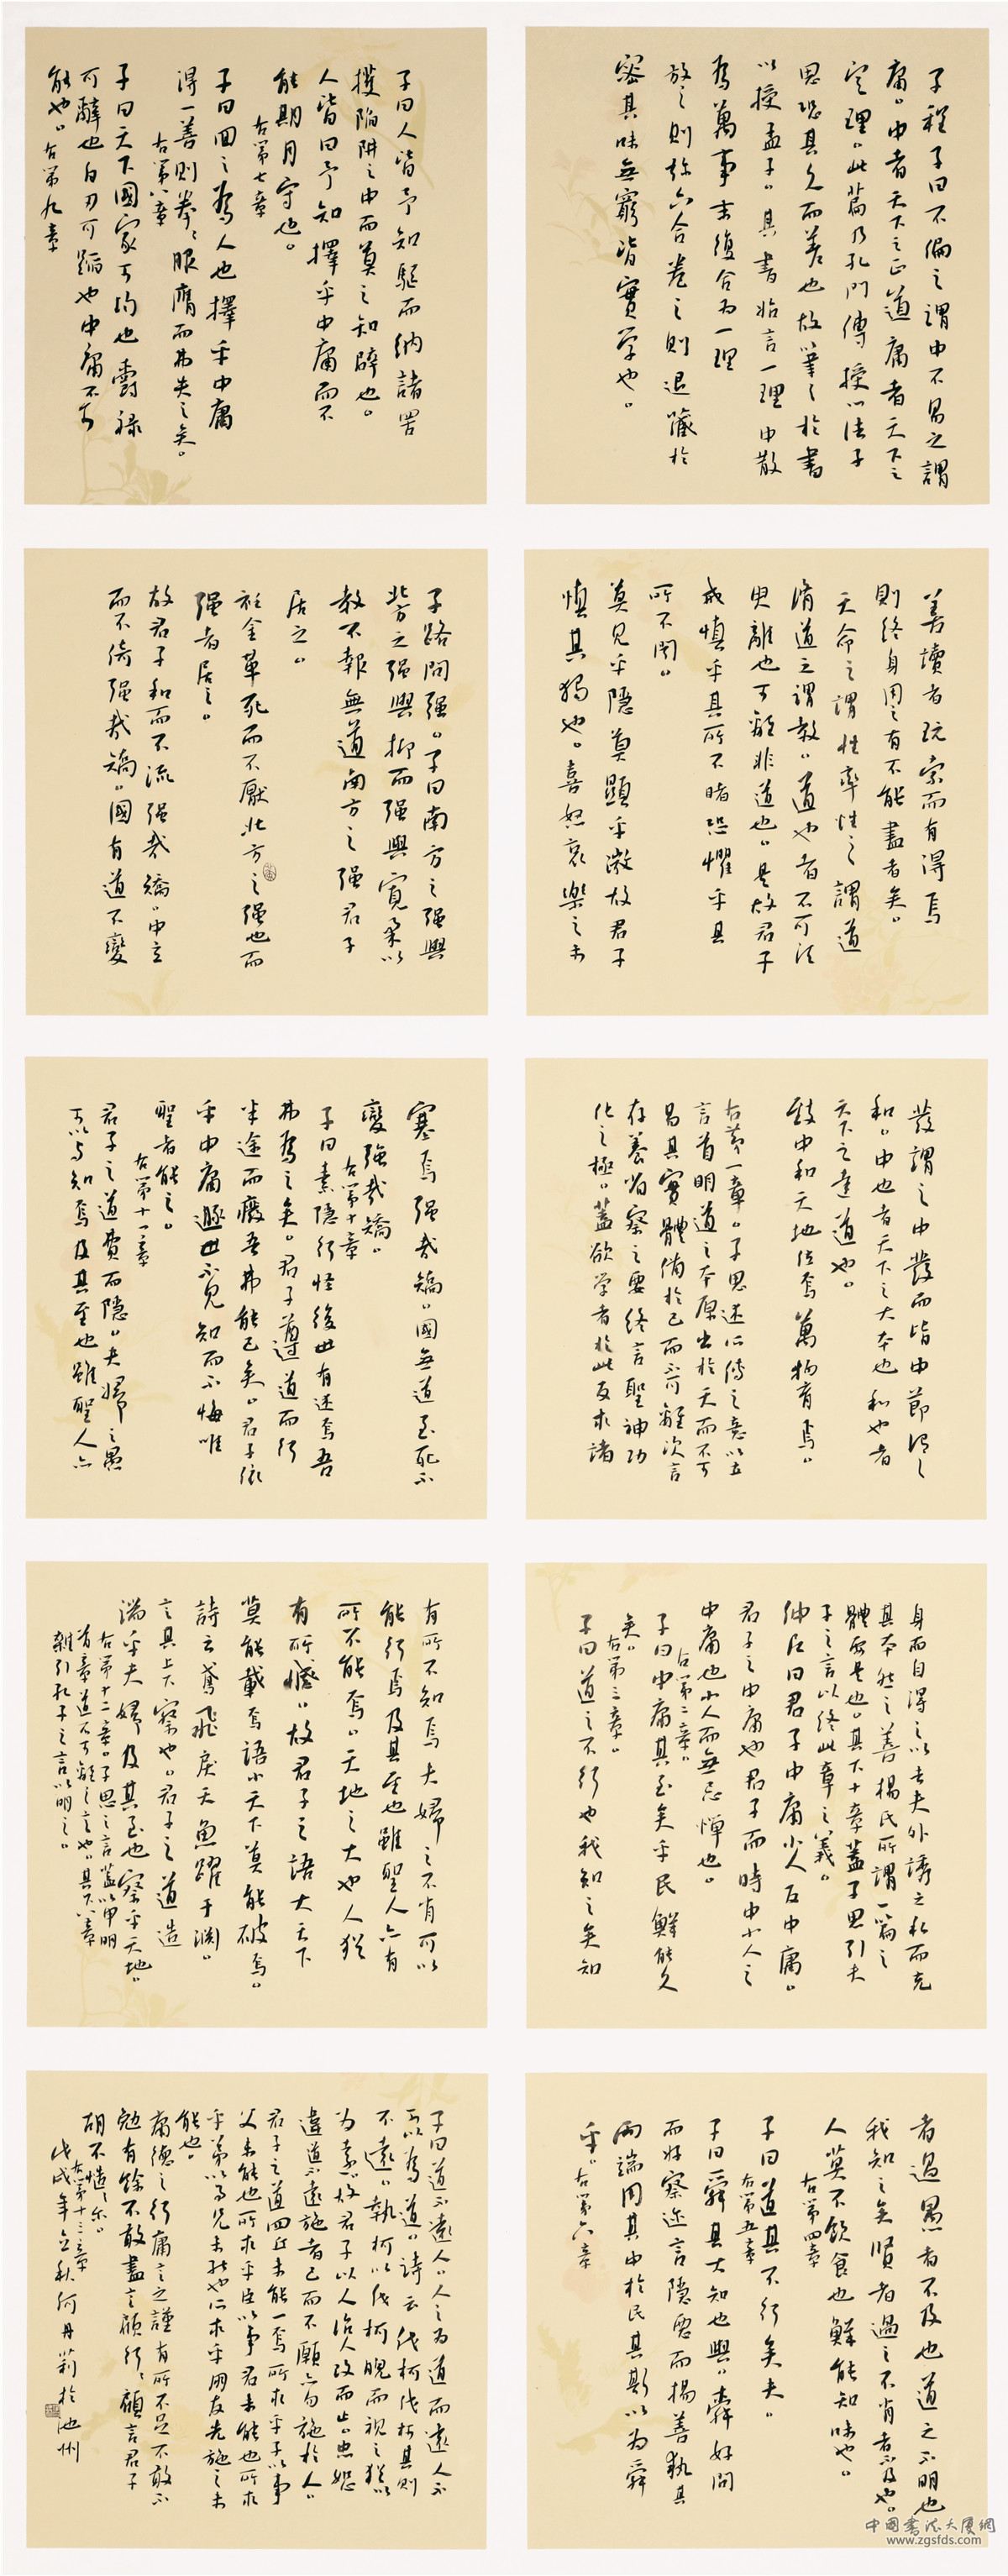 子程子曰不偏之謂中不易之謂
庸。中者天下之正道庸者天下之
定理。此篇乃孔門傳授心法子
思恐其久而差也故筆之於書
以授孟子。其書始言一理中散
為萬事末復合為一理
放之則彌六合卷之則退藏於
密其味無窮皆實學也。
善讀者玩索而有得焉
則終身用之有不能盡者矣。
天命之謂性率性之謂道
脩道之謂教。道也者不可須
臾離也可離非道也。是故君子
戒慎乎其所不睹恐懼乎其
所不聞。
莫見乎隱莫顯乎微故君子
慎其獨也。喜怒哀樂之未
發謂之中發而皆中節謂之
和。中也者天下之大本也和也者
天下之達道也。
致中和天地位焉萬物育焉。
右第一章。子思述所傳之意以立
言首明道之本原出於天而不可
易其實體備於己而不可離次言
存養省察之要終言聖神功
化之極。蓋欲學者於此反求諸
身而自得之以去夫外誘之私而充
其本然之善楊氏所謂一篇之
體要是也。其下十章蓋子思引夫
子之言以終此章之義。
仲尼曰君子中庸小人反中庸。
君子之中庸也君子而時中小人之
中庸也小人而無忌憚也。
右第二章。
子曰中庸其至矣乎民鮮能久
矣。
右第三章。
子曰道之不行也我知之矣知
者過愚者不及也道之不明也
我知之矣賢者過之不肖者不及也。
人莫不飲食也鮮能知味也。
右第四章
子曰道其不行矣夫。
右第五章
子曰舜其大知也與。舜好問
而好察邇言隱惡而揚善執其
兩端用其中於民其斯以為舜
乎。右第六章
子曰人皆予知驅而納諸罟
擭陷阱之中而莫之知辟也。
人皆曰予知擇乎中庸而不
能期月守也。
右第七章
子曰回之為人也擇乎中庸
得一善則拳拳服膺而弗失之矣。
右第八章
子曰天下國家可均也爵祿
可辭也白刃可蹈也中庸不可
能也。右第九章
子路問强。子曰南方之强與
北方之强與抑而强與寬柔以
教不報無道南方之强君子
居之。
衽金革死而不厭北方之强也而
强者居之。
故君子和而不流强哉矯。中立
而不倚强哉矯。國有道不變
塞焉强哉矯。國無道至死不
變强哉矯。
右第十章
子曰素隱行怪後世有述焉吾
弗為之矣。君子遵道而行
半途而廢吾弗能已矣。君子依
乎中庸遯世不見知而不悔唯
聖者能之。
右第十一章
君子之道費而隱。夫婦之愚
可以與知焉及其至也雖聖人亦
有所不知焉夫婦之不肖可以
能行焉及其至也雖聖人亦有
所不能焉。天地之大也人猶
有所憾。故君子之語大天下
莫能載焉語小天下莫能破焉。
詩云鳶飛戾天魚躍于淵。
言其上下察也。君子之道造
端乎夫婦及其至也察乎天地。
右第十二章。子思之言蓋以申明
首章道不可離之意也。其下八章
雜引孔子之言以明之。
子曰道不遠人。人之為道而遠人不
可以為道。詩云伐柯伐柯其則
不遠。執柯以伐柯睨而視之猶以
為遠。故君子以人治人改而止。忠恕
違道不遠施諸己而不願亦勿施於人。
君子之道四丘未能一焉所求乎子以事
父未能也所求乎臣以事君未能也所求
乎弟以事兄未能也所求乎朋友先施之未
能也。
庸德之行庸言之謹有所不足不敢不
勉有餘不敢盡言顧行行顧言君子
胡不慥慥爾。
右第十三章
戊戌年立秋何丹莉於池州
中国书法大厦網
www.zgsfds.com